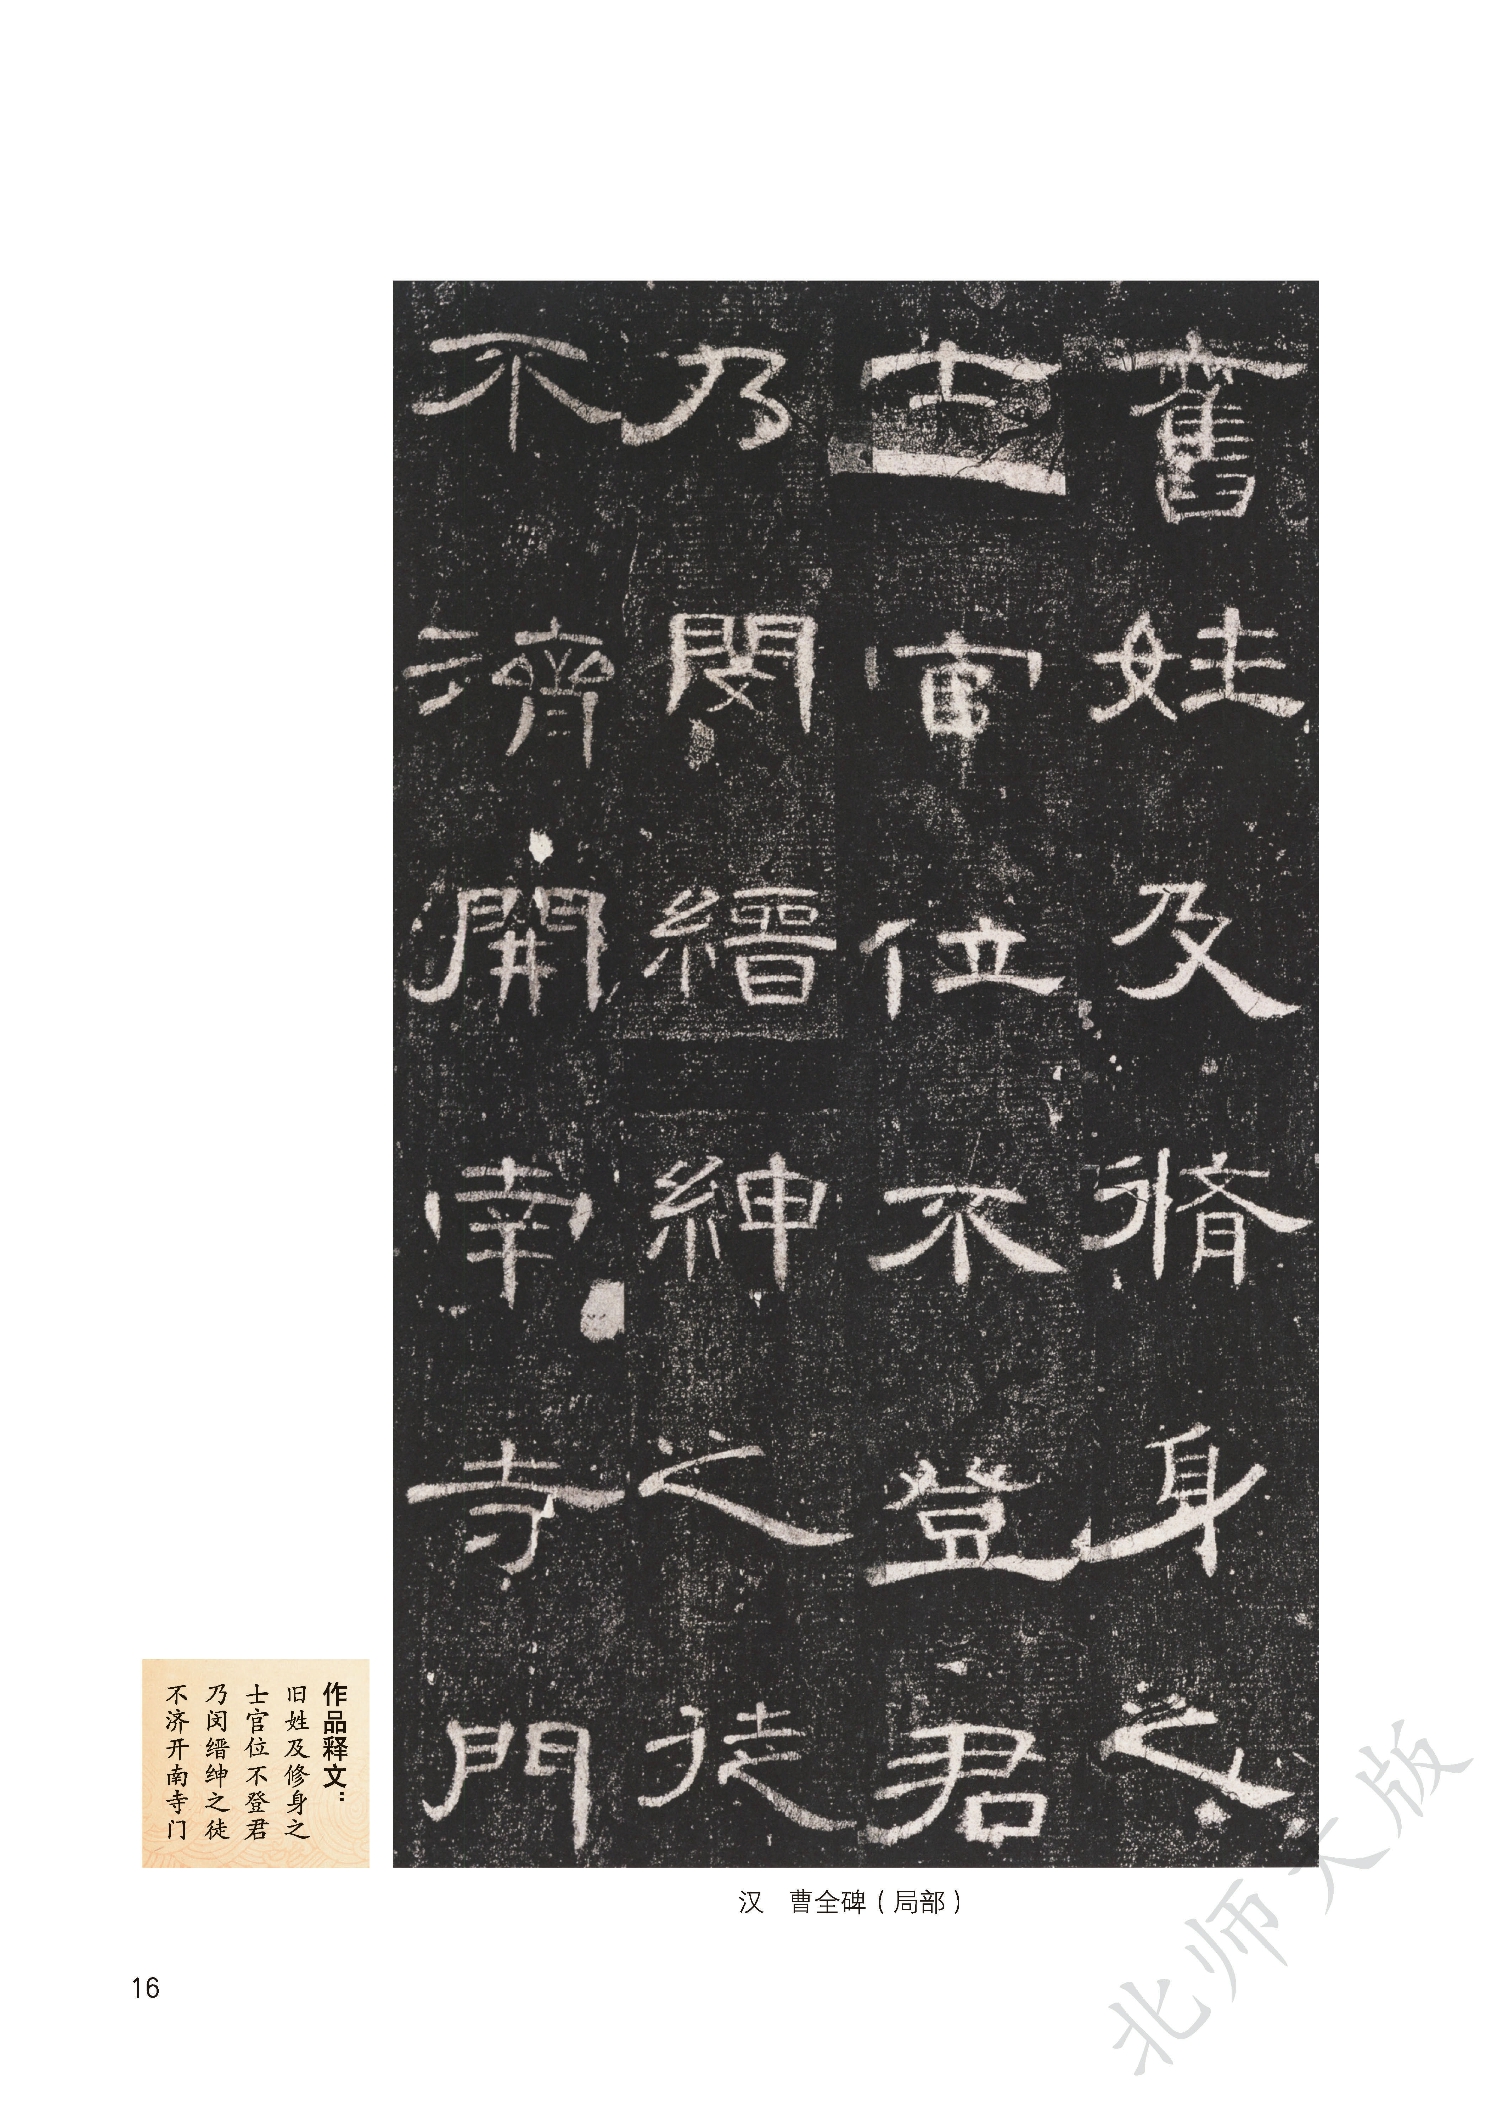 舊姓及脩身之
士官位不登君
乃閔縉紳之徒
不濟開南寺門
作品释文：
旧姓及修身之
士官位不登君
乃闵缙绅之徒
不济开南寺门
汉　曹全碑（局部）
16
北师大版